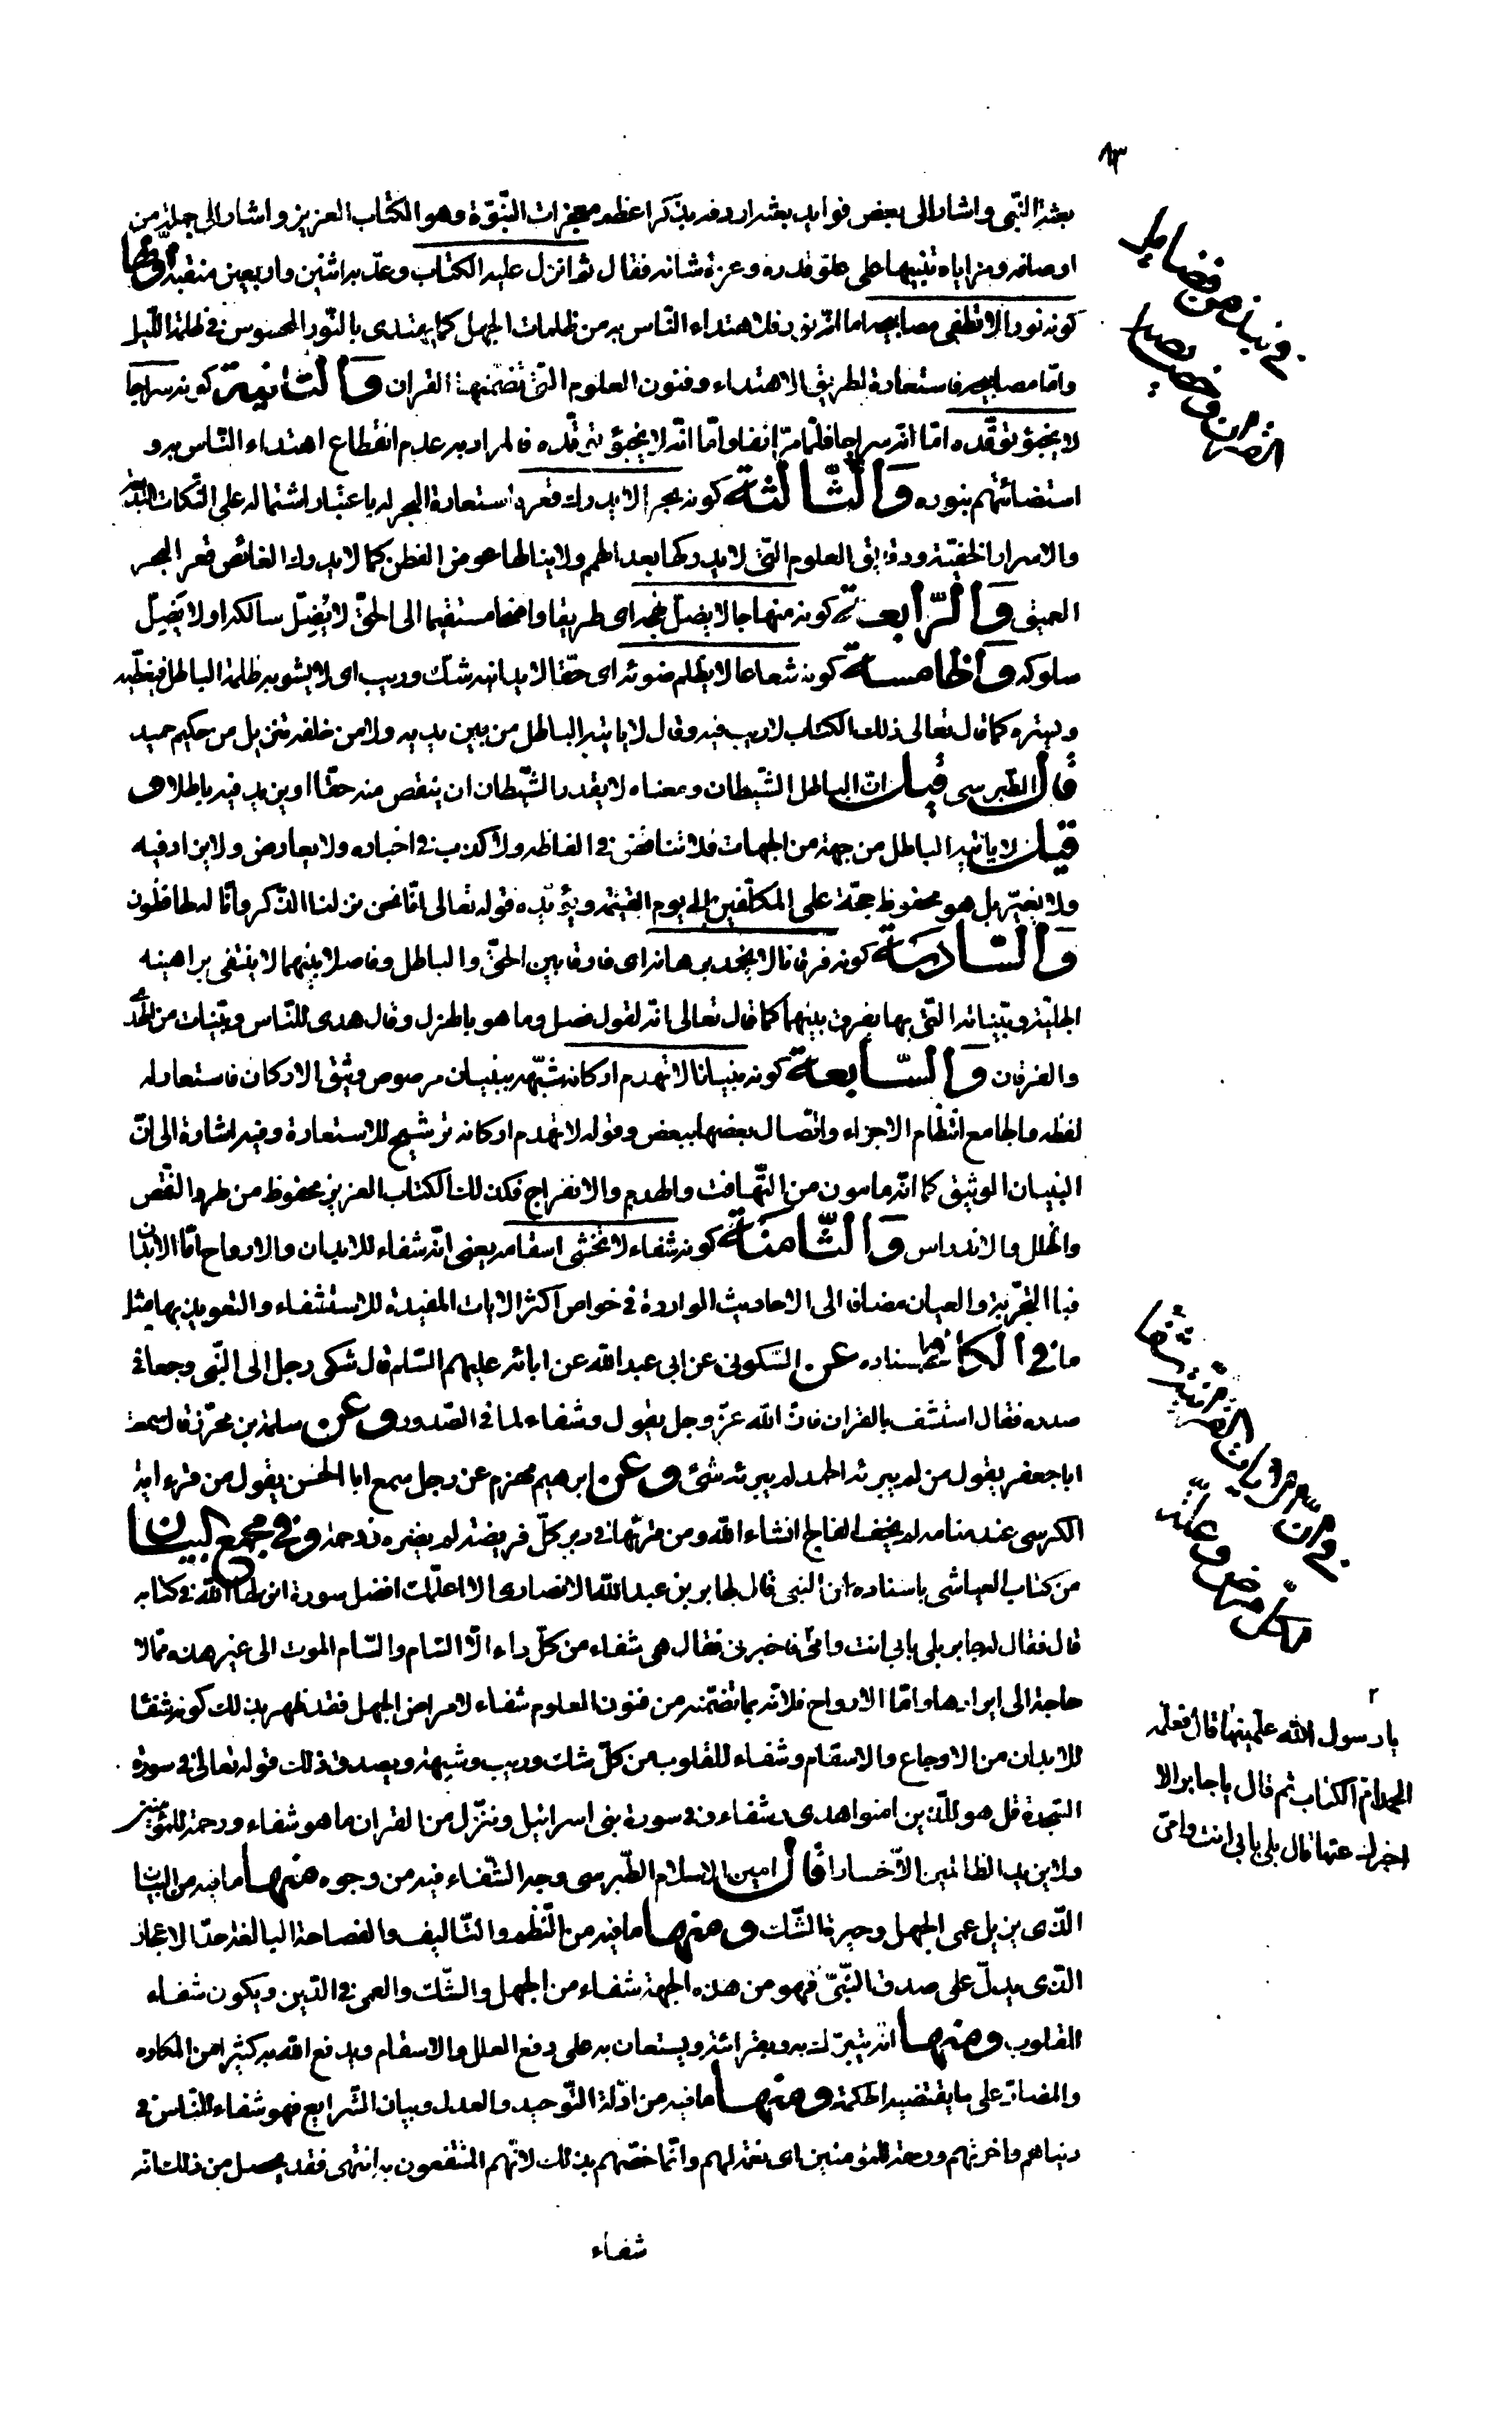 ٨٣
بعثة النّبى و اشار الى بعض فوايد بعثه اردفه بذكر اعظم معجزات النبّوة وهو الكتاب العزيز و اشار الى جملة من
اوصافه و مزاياه تنبيها على علوّ قدره و عزة شانه فقال ثم انزل عليه الكتاب وعدّ به اثنين واربعين منقبة اولها
كونه نورا لا تطفى مصابيحه اما انّه نور فلاهتداء النّاس به من ظلمات الجهل كما يهتدى بالنّور المحسوس فى ظلمة اللّيل
وامّا مصابيحه فاستعارة لطريق الاهتداء وفنون العلوم الّتى تضمّنها القران وَالثانية كونه سراجا
لا يخبؤ توقّده امّا انّه سراج فلما مرّ انفا و امّا انّه لا يخبؤ توقّده فالمراد به عدم انقطاع اهتداء النّاس به و
استضائتهم بنوره وَالثّالثة كونه بحرا لا يدرك قعره استعارة البحر له باعتبار اشتماله على النّكات البديعة
والاسرار الخفيّة ودقايق العلوم الّتى لا يدركها بعد الهمم ولا ينالها غوص الفطن كما لا يدرك الغائص قعر البحر
العميق وَالرّابعة كونه منهاجا لا يضلّ نهجه اى طريقا واضحا مستقيما الى الحقّ لا يُضِلّ سالكه او لا يَضِلّ
سلوكه وَالخامسة كونه شعاعا لا يظلم ضوئه اى حقّا لا يدانيه شكّ وريب اى لا يشوبه ظلمة الباطل فيغطّيه
ويستره كما قال تعالى ذلك الكتاب لا ريب فيه وقال لا ياتيه الباطل من بين يديه ولا من خلفه تنزيل من حكيم حميد
قال الطّبرسى قيل انّ الباطل الشّيطان ومعناه لا يقدر الشّيطان ان ينقص منه حقّا او يزيد فيه باطلا و
قيل لا ياتيه الباطل من جهة من الجهات فلا تناقض فى الفاظه ولا كذب فى اخباره ولا يعارض ولا يزاد فيه
ولا يغيّر بل هو محفوظ حجّة على المكلّفين الى يوم القيمة ويؤيّده قوله تعالى انّا نحن نزلنا الذّكر وانّا له لحافظون
وَالسّادسة كونه فرقانا لا يخمد برهانه اى فارقا بين الحقّ والباطل وفاصلا بينهما لا ينتفى براهينه
الجليّة وبيّناته الّتى بها يفرق بينهما كما قال تعالى انّه لقول فصل وما هو بالهزل وقال هدى للنّاس وبيّنات من الهدى
والفرقان وَالسّابعة كونه بنيانا لا تهدم اركانه شبّهه ببنيان مرصوص وثيق الاركان فاستعار له
لفظه والجامع انتظام الاجزاء واتّصال بعضها ببعض وقوله لا تهدم اركانه ترشيح للاستعارة وفيه اشارة الى انّ
البنيان الوثيق كما انّه مامون من التّهافت والهدم والانفراج فكذلك الكتاب العزيز محفوظ من طرو النّقص
والخلل والاندراس وَالثّامنة كونه شفاء لا تخشى اسقامه يعنى انّه شفاء للابدان والارواح امّا الابدان
فبالتّجربة والعيان مضافا الى الاحاديث الواردة فى خواص اكثر الايات المفيدة للاستشفاء والتعويذ بها مثل
ما فى الكافى باسناده عن السّكونى عن ابى عبد اللّه عن ابائه عليهم السّلم قال شكى رجل الى النّبى وجعا فى
صدره فقال استشف بالقران فانّ اللّه عزّ وجل يقول وشفاء لما فى الصّدور وعن سلمة بن محرز قال سمعت
ابا جعفر يقول من لم يبرئه الحمد لم يبرئه شئ وعن ابرهيم مهزم عن رجل سمع ابا الحسن يقول من قرء اية
الكرسى عند منامه لم يخف الفالج انشاء اللّه و من قرئها فى دبر كلّ فريضة لم يضره ذو حمة و فى مجمع البيان
من كتاب العياشى باسناده ان النبى قال لجابر بن عبد اللّه الانصارى الا اعلّمك افضل سورة انزلها اللّه فى كتابه
قال فقال له جابر بلى بابى انت وامّى فاخبرنى فقال هى شفاء من كلّ داء الّا السّام والسّام الموت الى غير هذه ممّا لا
حاجة الى ايرادها وامّا الارواح فلانّه بما تضمّنه من فنون العلوم شفاء لامراض الجهل فقد ظهر بذلك كونه شفاء
للابدان من الاوجاع والاسقام وشفاء للقلوب من كلّ شك وريب وشبهة ويصدق ذلك قوله تعالى فى سورة
السّجدة قل هو للّذين امنوا هدى وشفاء وفى سورة بنى اسرائيل وننزّل من القران ما هو شفاء ورحمة للمؤمنين
ولا يزيد الظالمين الّا خسارا قال امين الاسلام الطّبرسى وجه الشّفاء فيه من وجوه منها ما فيه من البيان
الّذى يزيل عمى الجهل وحيرة الشّك ومنها ما فيه من النّظم والتّاليف والفصاحة البالغة حدّ الاعجاز
الّذى يدلّ على صدق النّبىّ فهو من هذه الجهة شفاء من الجهل والشّك والعمى فى الدّين ويكون شفاء
للقلوب ومنها انّه يتبرّك به وبقرائته ويستعان به على دفع العلل والاسقام ويدفع اللّه به كثيرا من المكاره
والمضارّ على ما يقتضيه الحكمة ومنها ما فيه من ادّلة التّوحيد والعدل وبيان الشّرايع فهو شفاء للنّاس فى
دنياهم واخرتهم ورحمة للمؤمنين اى نعمة لهم وانّما خصّهم بذلك لانّهم المنتفعون به انتهى فقد يحصل من ذلك انّه
شفاء
فى بيان من فضايل
القران وخصايصه
فى ان القران شفاء
من كل مرض وعلّة
٢
يا رسول اللّه علّمنيها قال فعلّمه
الحمد ام الكتاب ثم قال يا جابر الا
اخبرك عنها قال بلى بابى انت وامّى